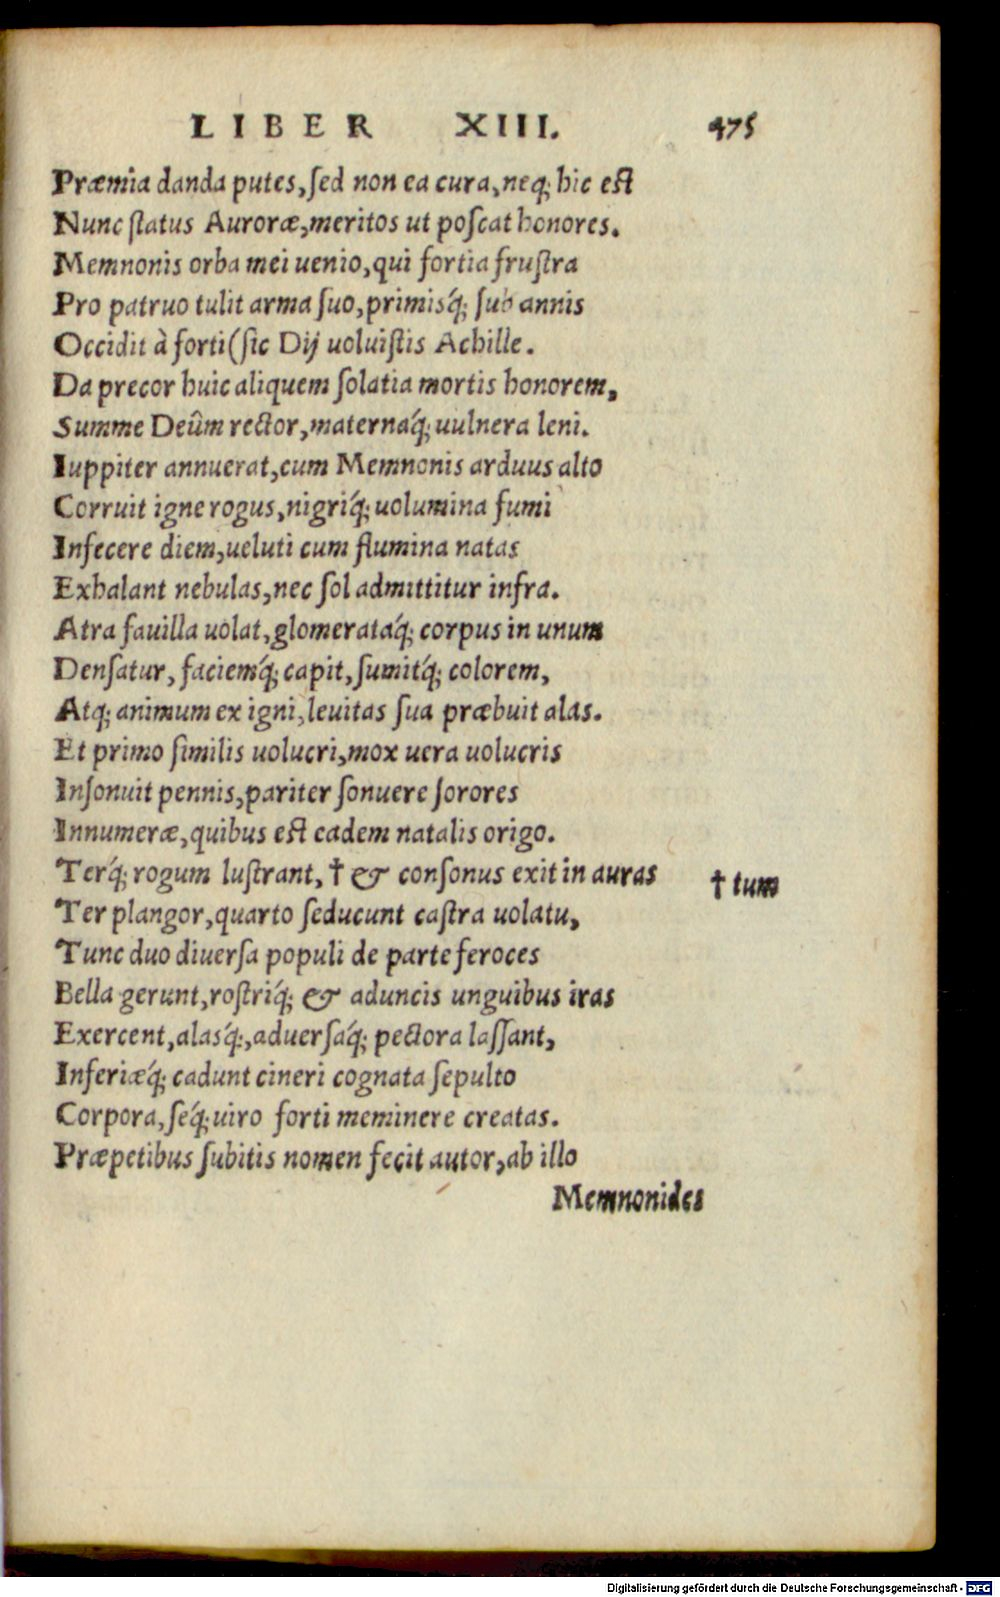 LIBER XIII. 475
Præmia danda putes, ſed non ea cura, neq; hic eſt
Nunc ſtatus Auroræ, meritos ut poſcat honores.
Memnonis orba mei uenio, qui fortia fruſtra
Pro patruo tulit arma ſuo, primisq́; ſub annis
Occidit à forti (ſic Dij uoluiſtis Achille.
Da precor huic aliquem ſolatia mortis honorem,
Summe Deûm rector, maternaq́; uulnera leni.
Iuppiter annuerat, cum Memnonis arduus alto
Corruit igne rogus, nigriq́; uolumina fumi
Infecere diem, ueluti cum flumina natas
Exhalant nebulas, nec ſol admittitur infra.
Atra fauilla uolat, glomerataq́; corpus in unum
Denſatur, faciemq́; capit, ſumitq́; colorem,
Atq; animum ex igni, leuitas ſua præbuit alas.
Et primo ſimilis uolucri, mox uera uolucris
Inſonuit pennis, pariter ſonuere ſorores
Innumeræ, quibus eſt eadem natalis origo.
Terq́; rogum luſtrant, † & conſonus exit in auras † tum
Ter plangor, quarto ſeducunt caſtra uolatu,
Tunc duo diuerſa populi de parte feroces
Bella gerunt, roſtriq́; & aduncis unguibus iras
Exercent, alasq́;, aduerſaq́; pectora laſſant,
Inferiæq́; cadunt cineri cognata ſepulto
Corpora, ſeq́; uiro forti meminere creatas.
Præpetibus ſubitis nomen fecit autor, ab illo
Memnonides
Digitalisierung gefördert durch die Deutsche Forschungsgemeinschaft - DFG